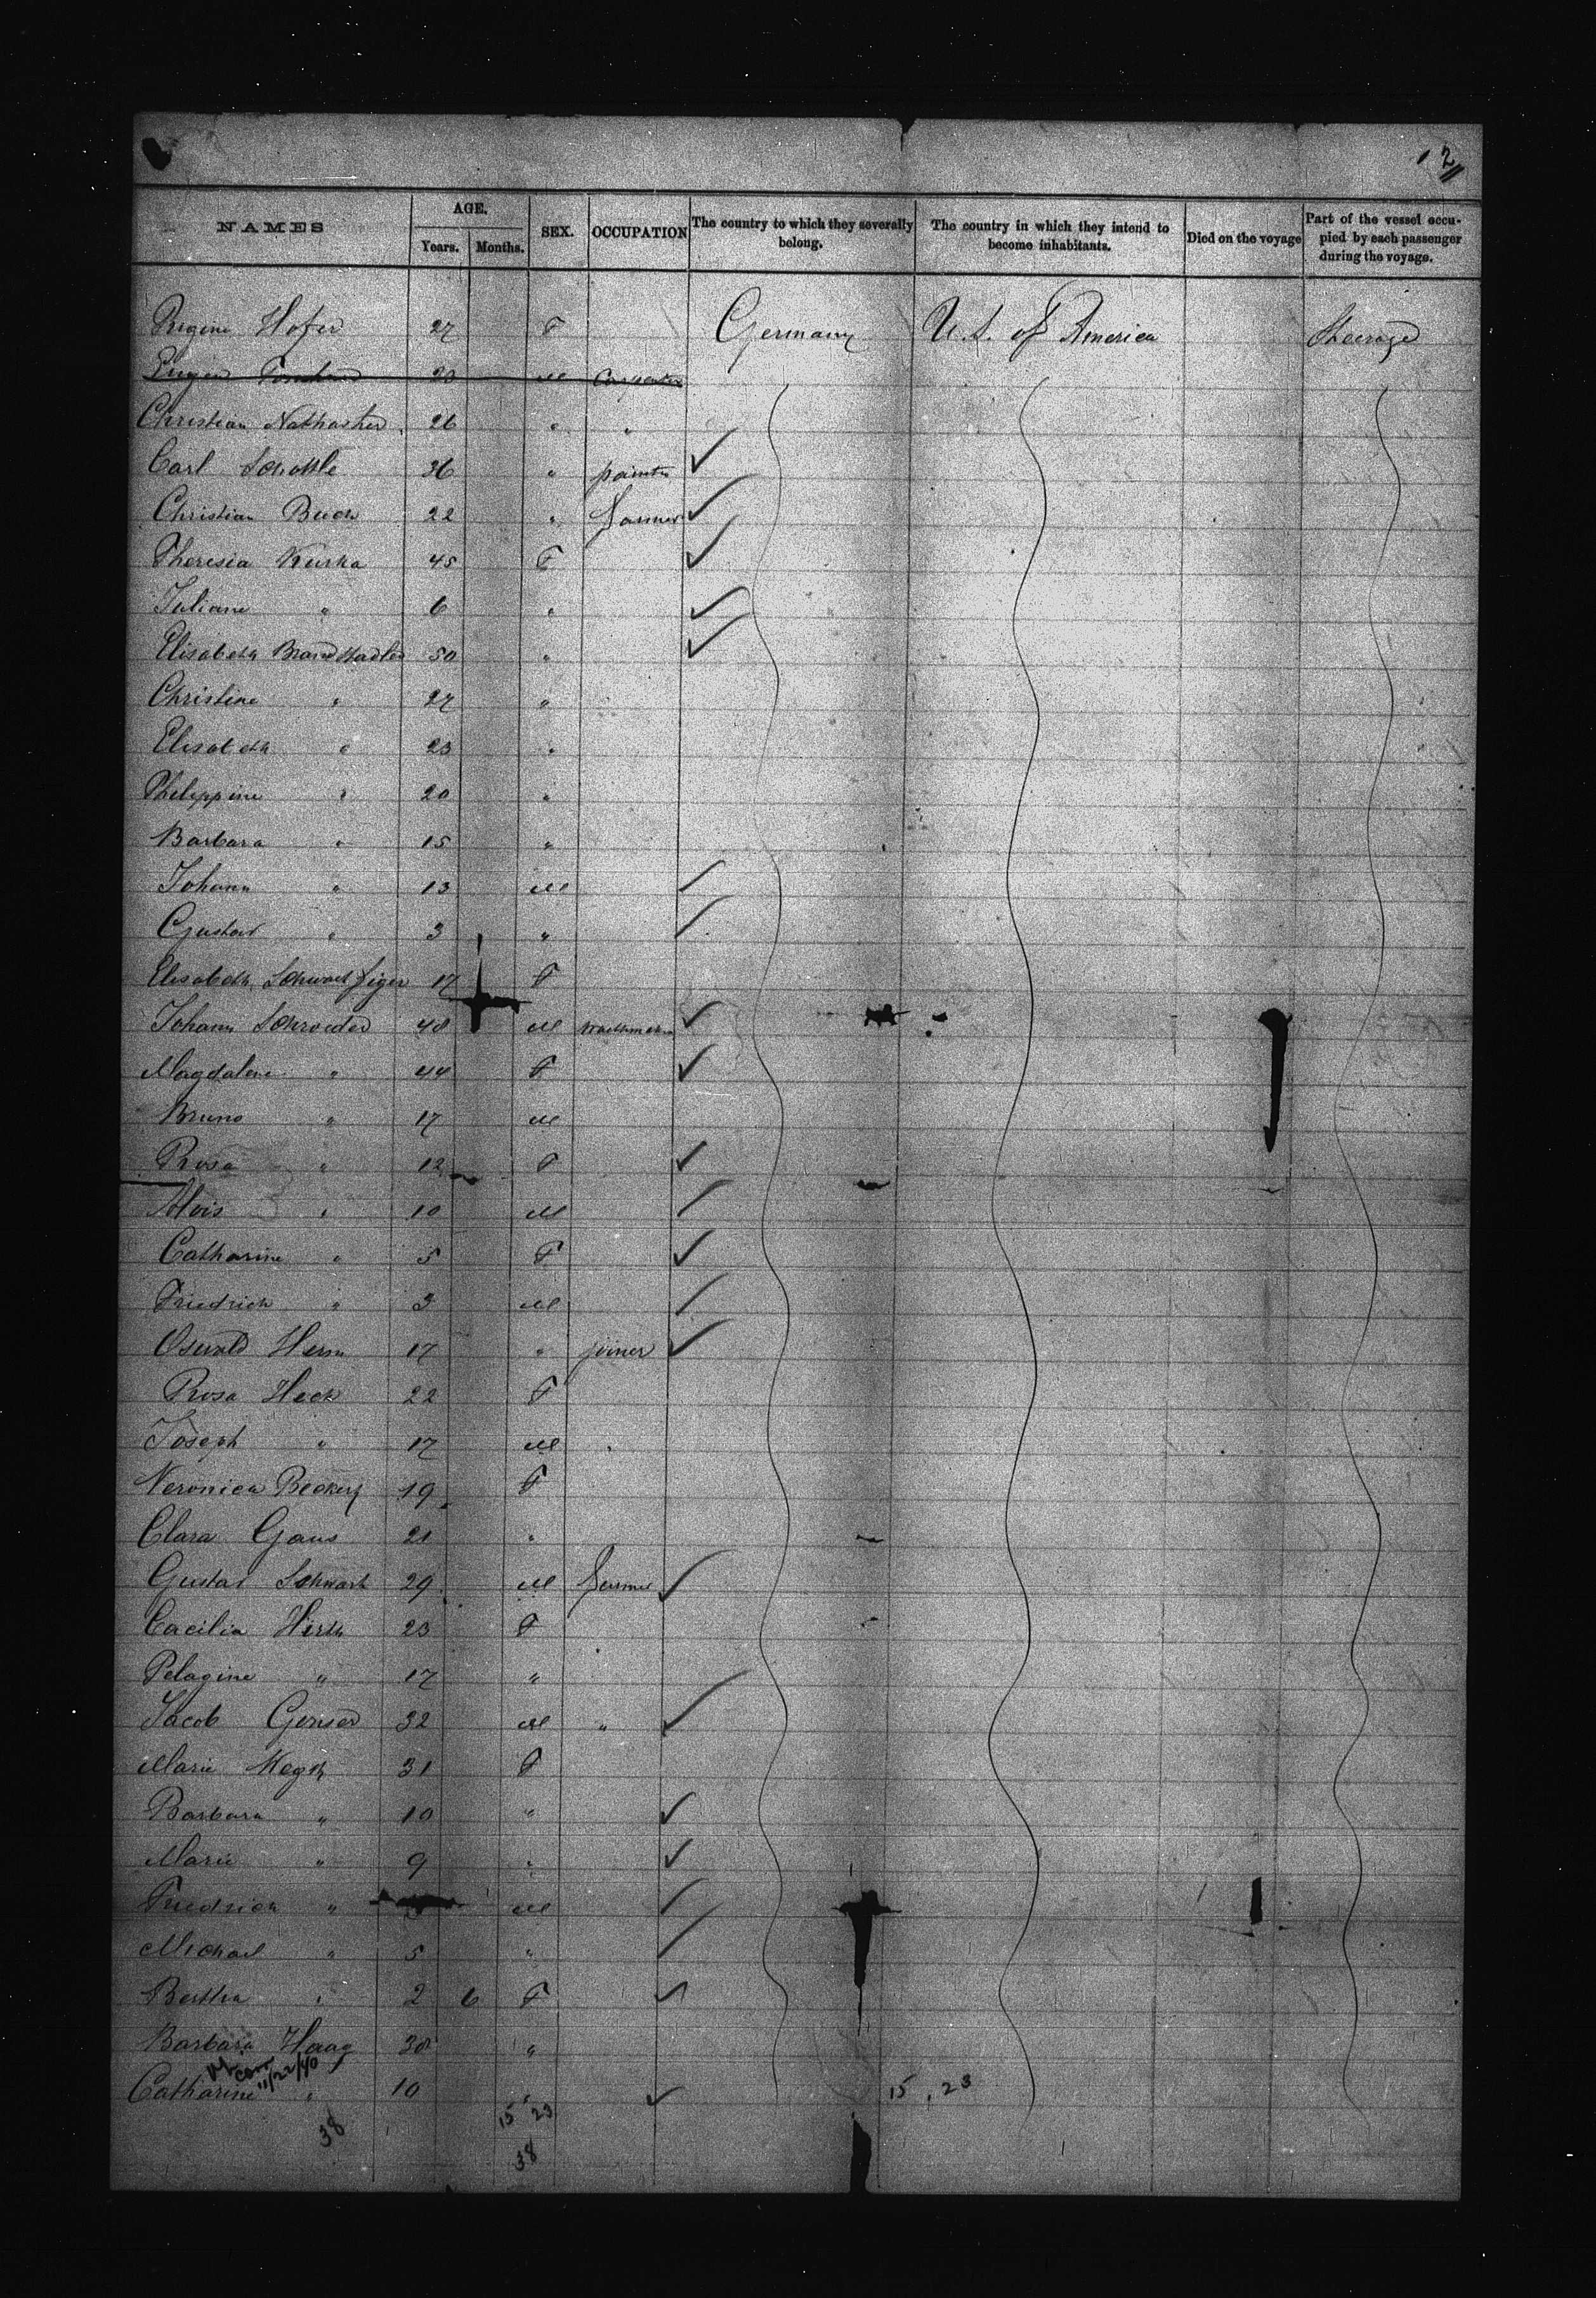 2
NAMES AGE. Years. Months. SEX. OCCUPATION The country to which they severally belong. The country in which they intend to become inhabitants. Died on the voyage Part of the vessel occupied by each passenger during the voyage.
Hofer 27 F Germany U.S. of America Steerage
23 M Carpenter
Christian 26 " "
Carl 36 " painter
Christian Buck 22 " farmer
Theresia Kurka 45 F
Juliane " 6 "
Elisabeth Brandstadter 50 "
Christine " 27 "
Elisabeth " 23 "
Philippine " 20 "
Barbara " 15 "
Johann " 13 M
Gustav " 3 "
Elisabeth 17 F
Johann Schroeder 48 M
Magdalene " 44 F
Bruno " 17 M
Rosa " 12 F
Alois " 10 M
Catharine " 5 F
Friedrich " 3 M
Oswald Herm 17 " joiner
Rosa Heck 22 F
Joseph " 17 M
Veronica 19 F
Clara Gaus 21 "
Gustav Schwark 29 M farmer
Cacilia Hirth 23 F
Pelagine " 17 "
Jacob 32 M "
Marie 31 F
Barbara " 10 "
Marie " 9 "
Friedrich " M
Michael " 5 "
Bertha " 2 6 F
Barbara Haag 38 "
11/22/40
Catharine " 10 " 15, 23
38 15 23
38